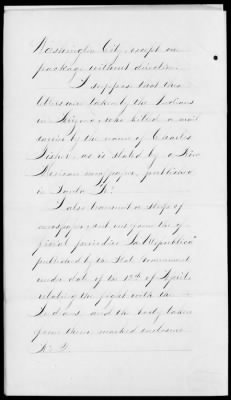 Washington City, except one
package without direction.
I suppose that this
was taken by the Indians
in Arizona, who killed a mail
carrier by the name of Charles
Fisher, as is stated by a New
Mexican newspaper, published
in Santa Fé.
I also transmit a slip of
newspaper, cut out from the of-
ficial periodico "La Republica"
published by the State Government
under date of the 12th of April
relating the fight with the
Indians, and the booty taken
from them marked enclosure